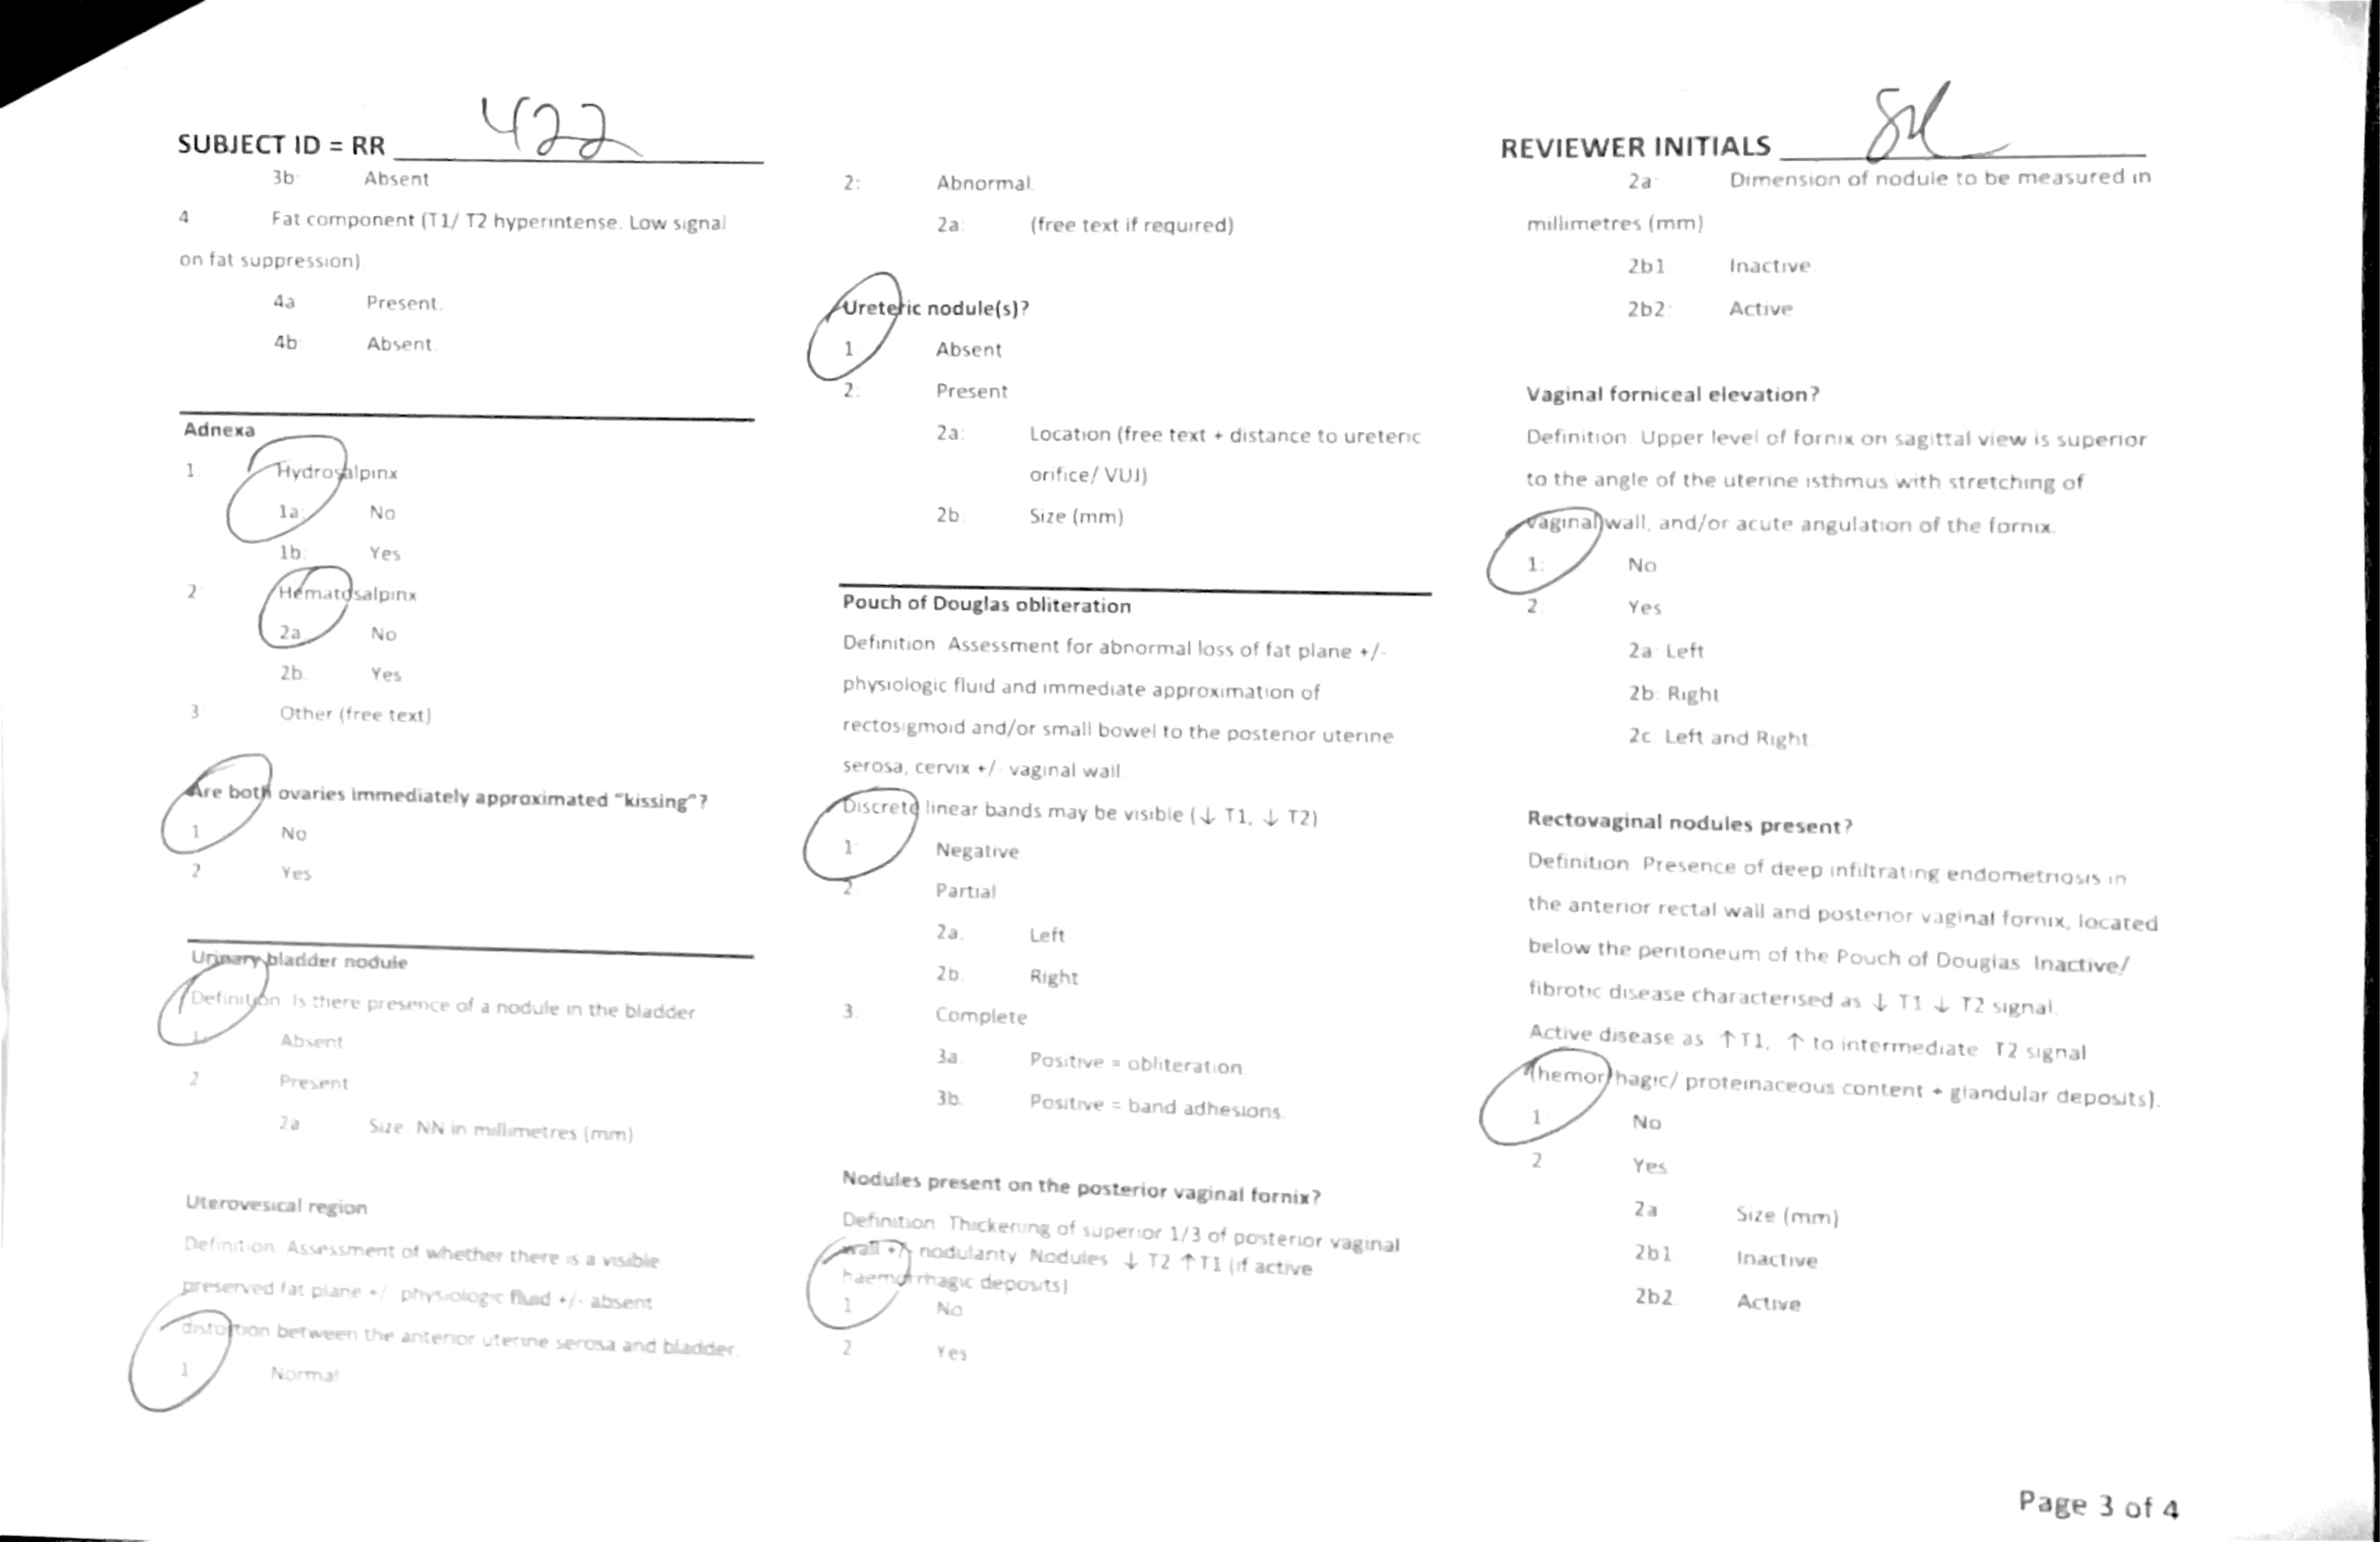 SUBJECT ID = RR 422
3b: Absent
4 Fat component (T1/ T2 hyperintense. Low signal
on fat suppression).
4a Present.
4b: Absent.
Adnexa
1: Hydrosalpinx
1a: No
1b: Yes
2 Hematosalpinx
2a No
2b. Yes
3 Other (free text)
Are both ovaries immediately approximated “kissing”?
1 No
2 Yes
Urinary bladder nodule
Definition Is there presence of a nodule in the bladder
1. Absent
2 Present
2a Size NN in millimetres (mm)
Uterovesical region
Definition Assessment of whether there is a visible
preserved fat plane +/ physiologic fluid +/- absent
distortion between the anterior uterine serosa and bladder.
1 Normal
2: Abnormal.
2a: (free text if required)
Ureteric nodule(s)?
1 Absent
2: Present
2a: Location (free text + distance to ureteric
orifice/ VUJ)
2b Size (mm)
Pouch of Douglas obliteration
Definition Assessment for abnormal loss of fat plane +/-
physiologic fluid and immediate approximation of
rectosigmoid and/or small bowel to the posterior uterine
serosa, cervix +/- vaginal wall
Discrete linear bands may be visible (↓ T1, ↓ T2)
1: Negative
2. Partial
2a. Left
2b. Right
3. Complete
3a Positive = obliteration
3b. Positive = band adhesions.
Nodules present on the posterior vaginal fornix?
Definition Thickening of superior 1/3 of posterior vaginal
wall +/- nodularity Nodules ↓ T2 ↑T1 (if active
haemorrhagic deposits)
1 No
2 Yes
REVIEWER INITIALS
2a: Dimension of nodule to be measured in
millimetres (mm)
2b1 Inactive
2b2: Active
Vaginal forniceal elevation?
Definition Upper level of fornix on sagittal view is superior
to the angle of the uterine isthmus with stretching of
vaginal wall, and/or acute angulation of the fornix.
1: No
2. Yes
2a: Left
2b: Right
2c Left and Right
Rectovaginal nodules present?
Definition Presence of deep infiltrating endometriosis in
the anterior rectal wall and posterior vaginal fornix, located
below the peritoneum of the Pouch of Douglas Inactive/
fibrotic disease characterised as ↓ T1 ↓ T2 signal.
Active disease as ↑T1, ↑ to intermediate T2 signal
(hemorrhagic/ proteinaceous content + glandular deposits).
1 No
2 Yes
2a Size (mm)
2b1 Inactive
2b2. Active
Page 3 of 4